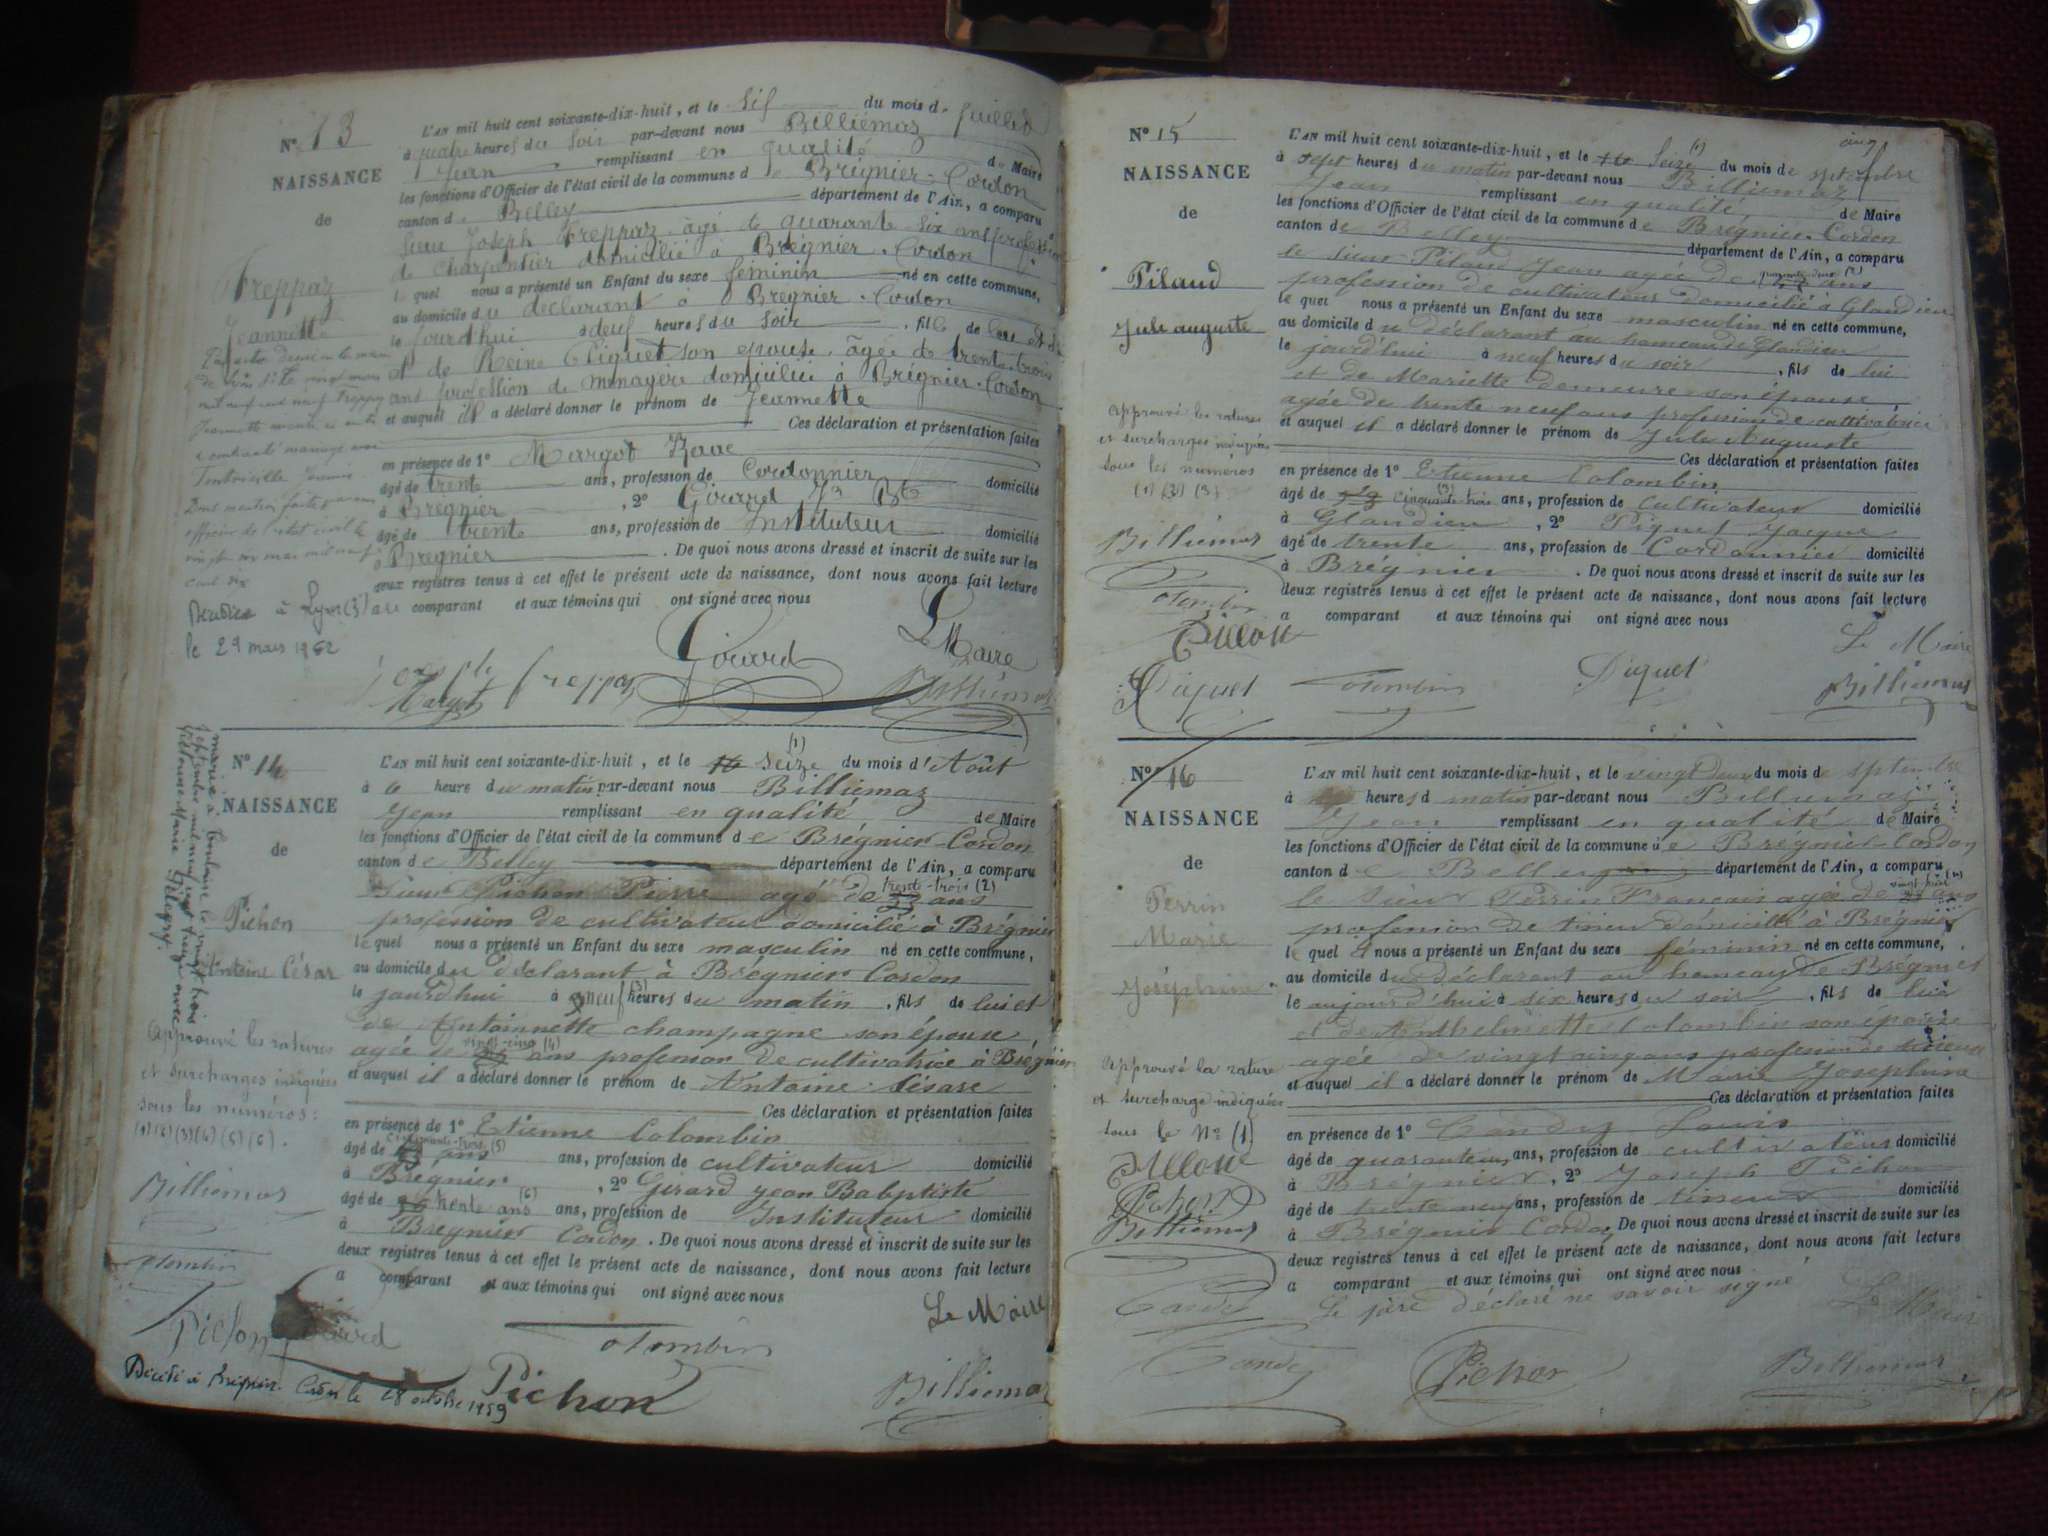 N° 13
NAISSANCE
de
Freppaz
Jeannette
L'AN mil huit cent soixante-dix-huit, et le six du mois de juillet
à quatre heures du soir par-devant nous Billiémaz
Jean remplissant en qualité de Maire
les fonctions d'Officier de l'état civil de la commune de Brégnier-Cordon
canton de Belley département de l'Ain, a comparu
Sieur Joseph Freppaz âgé de quarante six ans profession
de charpentier domicilié à Brégnier-Cordon
lequel nous a présenté un Enfant du sexe féminin né en cette commune,
au domicile du déclarant à Brégnier-Cordon
le jourdhui à deux heures du soir, fille de lui et de
et de Reine Piquet son épouse, âgée de trente-trois
ans profession de ménagère domiciliée à Brégnier-Cordon
et auquel il a déclaré donner le prénom de Jeannette
Ces déclaration et présentation faites
en présence de 1° Margot
âgé de trente ans, profession de Cordonnier domicilié
à Brégnier, 2° Girard Jn Bte
âgé de trente ans, profession de Instituteur domicilié
à Brégnier. De quoi nous avons dressé et inscrit de suite sur les
deux registres tenus à cet effet le présent acte de naissance, dont nous avons fait lecture
au comparant et aux témoins qui ont signé avec nous
à Lyon (3e)
le 29 mars 1962
Girard Le Maire
Joseph freppaz Billiémaz
Margot
N° 14
NAISSANCE
de
Pichon
Antoine César
marié à
Approuvé les ratures
et surcharges indiquées
sous les numéros:
(1) (2) (3) (4) (5) (6).
Billiémaz
Colombin
L'AN mil huit cent soixante-dix-huit, et le 16 Seize (1) du mois d'Août
à heure du matin par-devant nous Billiémaz
Jean remplissant en qualité de Maire
les fonctions d'Officier de l'état civil de la commune de Brégnier-Cordon
canton de Belley département de l'Ain, a comparu
Sieur Pichon Pierre agé de trente-trois (2) ans
profession de cultivateur domicilié à Brégnier
lequel nous a présenté un Enfant du sexe masculin né en cette commune,
au domicile du déclarant à Brégnier Cordon
le jourd'hui à neuf (3) heures du matin, fils de lui et
de Antoinnette champagne son épouse
agée de vingt-cinq (4) ans profession de cultivatrice à Brégnier
et auquel il a déclaré donner le prénom de Antoine Césare
Ces déclaration et présentation faites
en présence de 1° Etienne Colombin
âgé de cinquante-trois (5) ans ans, profession de cultivateur domicilié
à Brégnier, 2° Girard Jean Babptiste
âgé de trente ans (6) ans, profession de Instituteur domicilié
à Brégnier Cordon. De quoi nous avons dressé et inscrit de suite sur les
deux registres tenus à cet effet le présent acte de naissance, dont nous avons fait lecture
a comparant et aux témoins qui ont signé avec nous
Le Maire
Pichon Girard Colombin
Pichon Billiémaz
Décédé à Brégnier-Cordon le 28 octobre 1959
N° 15
NAISSANCE
de
Pilaud
Jule auguste
Approuvé les ratures
et surcharges indiquées
sous les numéros
(1) (2) (3)
Billiémaz
Colombin
Piquet
L'AN mil huit cent soixante-dix-huit, et le 16 Seize (1) du mois de septembre
à sept heures du matin par-devant nous Billiemaz
Jean remplissant en qualité, de Maire
les fonctions d'Officier de l'état civil de la commune de Brégnier-Cordon
canton de Belley département de l'Ain, a comparu
le sieur Pilaud Jean agée de quarante-deux (2) ans
profession de cultivateur domicilié à Glandieu
lequel nous a présenté un Enfant du sexe masculin né en cette commune,
au domicile du déclarant au hameau de Glandieu
le jourd'hui à neuf heures du soir, fils de lui
et de Mariette demeure son épouse
agée de trente neuf ans profession de cultivatrice
et auquel il a déclaré donner le prénom de Jule Auguste
Ces déclaration et présentation faites
en présence de 1° Etienne Colombin
âgé de cinquante-trois (3) ans, profession de cultivateur domicilié
à Glandieu, 2° Piquet Jacque
âgé de trente ans, profession de Cordonnier domicilié
à Brégnier. De quoi nous avons dressé et inscrit de suite sur les
deux registres tenus à cet effet le présent acte de naissance, dont nous avons fait lecture
a comparant et aux témoins qui ont signé avec nous
Le Maire
Colombin Piquet Billiémaz
N° 16
NAISSANCE
de
Perrin
Marie
Joséphine
Approuvé la rature
et surcharge indiquée
sous le N° (1)
Pichon
Billiémaz
L'AN mil huit cent soixante-dix-huit, et le vingt deux du mois de septembre
à heures d matin par-devant nous Billiemaz
Jean remplissant en qualité de Maire
les fonctions d'Officier de l'état civil de la commune de Brégnier-Cordon
canton de Belley département de l'Ain, a comparu
le sieur Perrin Francois agée de vingt-huit (1) ans
profession de tineur domicilié à Brégnier
lequel il nous a présenté un Enfant du sexe féminin né en cette commune,
au domicile du déclarant au hameau de Brégnier
le aujourd'hui à six heures du soir, fils de lui
et de Anthelmette Colombin son épouse
agée de vingt cinq ans profession de
et auquel il a déclaré donner le prénom de Marie Josephine
Ces déclaration et présentation faites
en présence de 1° Candy Louis
âgé de quarante un ans, profession de cultivateur domicilié
à Brégnier, 2° Joseph Pichon
âgé de trente neuf ans, profession de tineur domicilié
à Brégnier Cordon. De quoi nous avons dressé et inscrit de suite sur les
deux registres tenus à cet effet le présent acte de naissance, dont nous avons fait lecture
a comparant et aux témoins qui ont signé avec nous
Le père déclaré ne savoir signé Le Maire
Candy Pichon Billiemaz